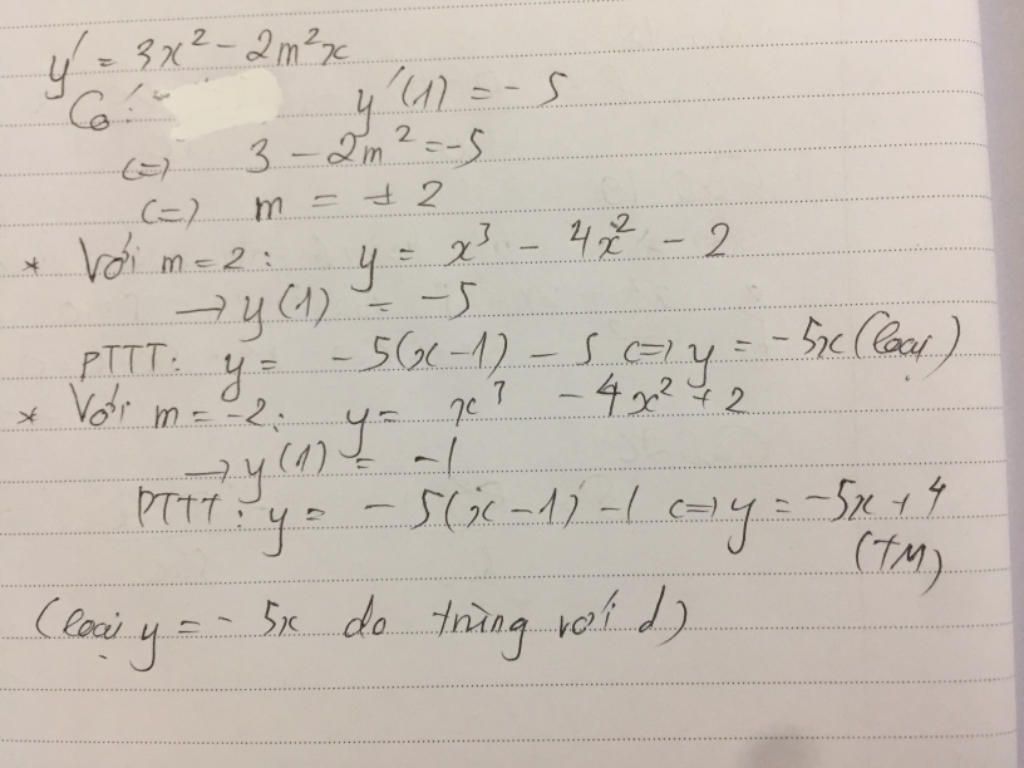 y' = 3x² - 2m²x
Có: y'(1) = -5
<=> 3 - 2m² = -5
<=> m = ±2
* Với m = 2: y = x³ - 4x² - 2
→ y(1) = -5
PTTT: y = -5(x-1) - 5 <=> y = -5x (loại)
* Với m = -2: y = x³ - 4x² + 2
→ y(1) = -1
PTTT: y = -5(x-1) - 1 <=> y = -5x + 4
(TM)
(loại y = -5x do trùng với d)